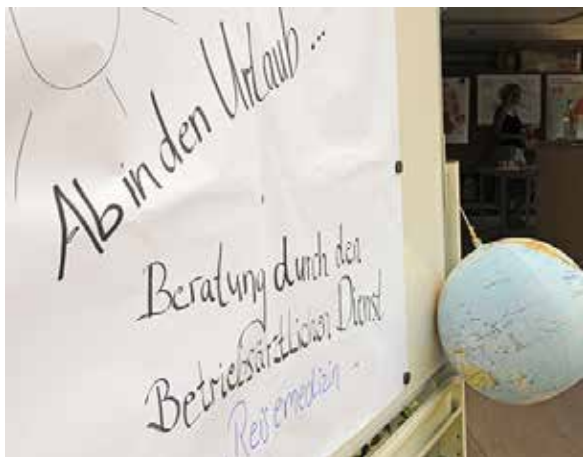 Ab in den Urlaub ...
Beratung durch den
Betriebsärztlichen Dienst
Reisemedizin -